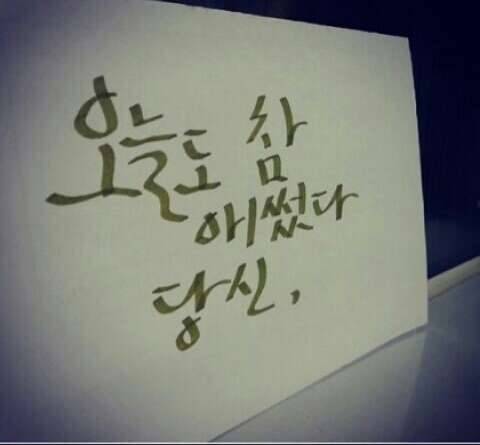 오늘도 참
애썼다
당신,